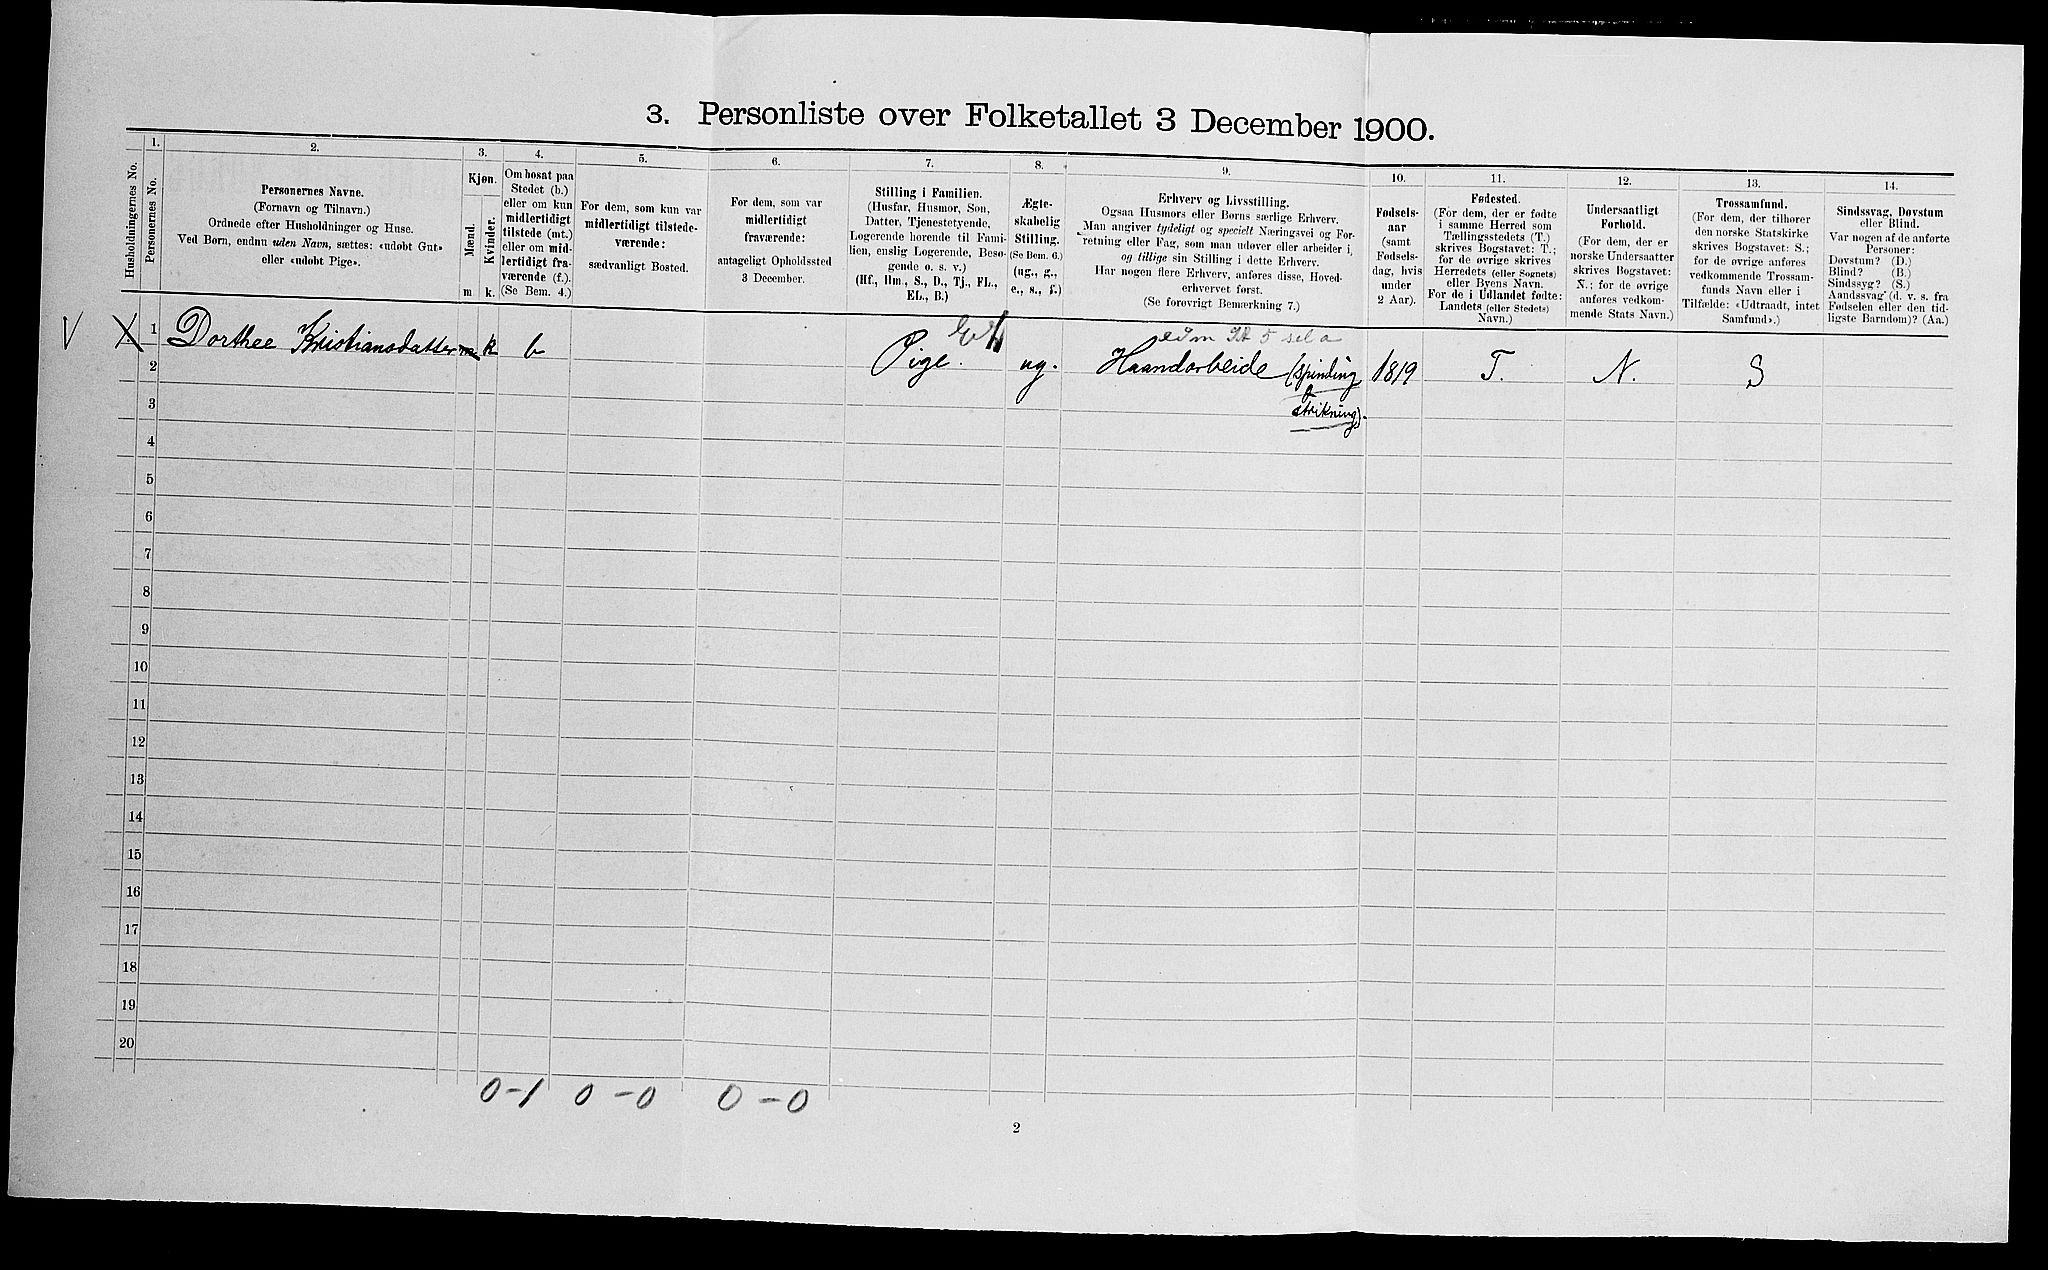 3. Personliste over Folketallet 3 December 1900.
Husholdningernes No.
1.
Personernes No.
2.
Personernes Navne.
(Fornavn og Tilnavn.)
Ordnede efter Husholdninger og Huse.
Ved Børn, endnu uden Navn, sættes: «udøbt Gut»
eller «udøbt Pige».
3.
Kjøn.
Mænd.
Kvinder.
m k.
4.
Om bosat paa
Stedet (b.)
eller om kun
midlertidigt
tilstede (mt.)
eller om mid-
lertidigt fra-
værende (f.).
(Se Bem. 4.)
5.
For dem, som kun var
midlertidigt tilstede-
værende:
sædvanligt Bosted.
6.
For dem, som var
midlertidigt
fraværende:
antageligt Opholdssted
3 December.
7.
Stilling i Familien.
(Husfar, Husmor, Søn,
Datter, Tjenestetyende,
Logerende hørende til Fami-
lien, enslig Logerende, Besø-
gende o. s. v.)
(Hf., Hm., S., D., Tj., FL.,
EL., B.)
8.
Ægte-
skabelig
Stilling.
(Se Bem. 6.)
(ug., g.,
e., s., f.)
9.
Erhverv og Livsstilling.
Ogsaa Husmors eller Børns særlige Erhverv.
Man angiver tydeligt og specielt Næringsvei og For-
retning eller Fag, som man udøver eller arbeider i,
og tillige sin Stilling i dette Erhverv.
Har nogen flere Erhverv, anføres disse, Hoved-
erhvervet først.
(Se forøvrigt Bemærkning 7.)
10.
Fødsels-
aar
(samt
Fødsels-
dag, hvis
under
2 Aar).
11.
Fødested.
(For dem, der er fødte
i samme Herred som
Tællingsstedets (T.)
skrives Bogstavet: T.;
for de øvrige skrives
Herredets (eller Sognets)
eller Byens Navn.
For de i Udlandet fødte:
Landets (eller Stedets)
Navn.)
12.
Undersaatligt
Forhold.
(For dem, der er
norske Undersaatter
skrives Bogstavet:
N.; for de øvrige
anføres vedkom-
mende Stats Navn.)
13.
Trossamfund.
(For dem, der tilhører
den norske Statskirke
skrives Bogstavet: S.;
for de øvrige anføres
vedkommende Trossam-
funds Navn eller i
Tilfælde: «Udtraadt, intet
Samfund».)
14.
Sindssvag, Døvstum
eller Blind.
Var nogen af de anførte
Personer:
Døvstum? (D.)
Blind? (B.)
Sindssyg? (S.)
Aandssvag (d. v. s. fra
Fødselen eller den tid-
ligste Barndom)? (Aa.)
V X 1 Dorthee Kristiansdatter m k b Pige. ug. Haandarbeide (Spinding 1819 T. N. S
& strikning).
2
3
4
5
6
7
8
9
10
11
12
13
14
15
16
17
18
19
20
0-1 0-0 0-0
2